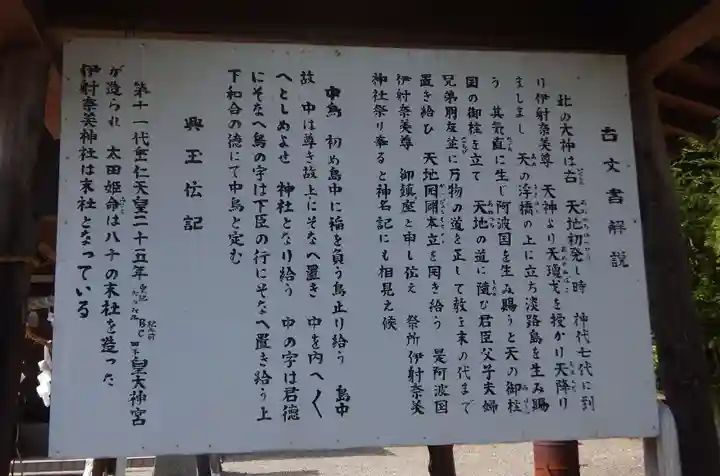 古文書解説
此の大神は古 天地初発し時 神代七代に到
り伊射奈美尊 天神より天瓊戈を授かり天降り
ましまし 天の浮橋の上に立ち淡路島を生み賜
う 其気直に生じ阿波国を生み賜うと天の御柱
国の御柱を立て 天地の道に随ひ君臣父子夫婦
兄弟朋友並に万物の道を正して教を末の代まで
置き給ひ 天地国爾本立を開き給う 是阿波国
伊射奈美尊 御鎮座と申し伝え 祭所伊射奈美
神社祭り奉ると神名記にも相見え候
中鳥 初め鳥中に稲を負う鳥止り給う 鳥中
故 中は尊き故上にそなへ置き 中を内へ〱
へとしめよせ 神社となり給う 中の字は君徳
にそなへ鳥の字は下臣の行にそなへ置き給う上
下和合の徳にて中鳥と定む
興王伝記
第十一代垂仁天皇二十五年 BC 皇大神宮
が造られ 太田姫命は八千の末社を造った
伊射奈美神社は末社となっている